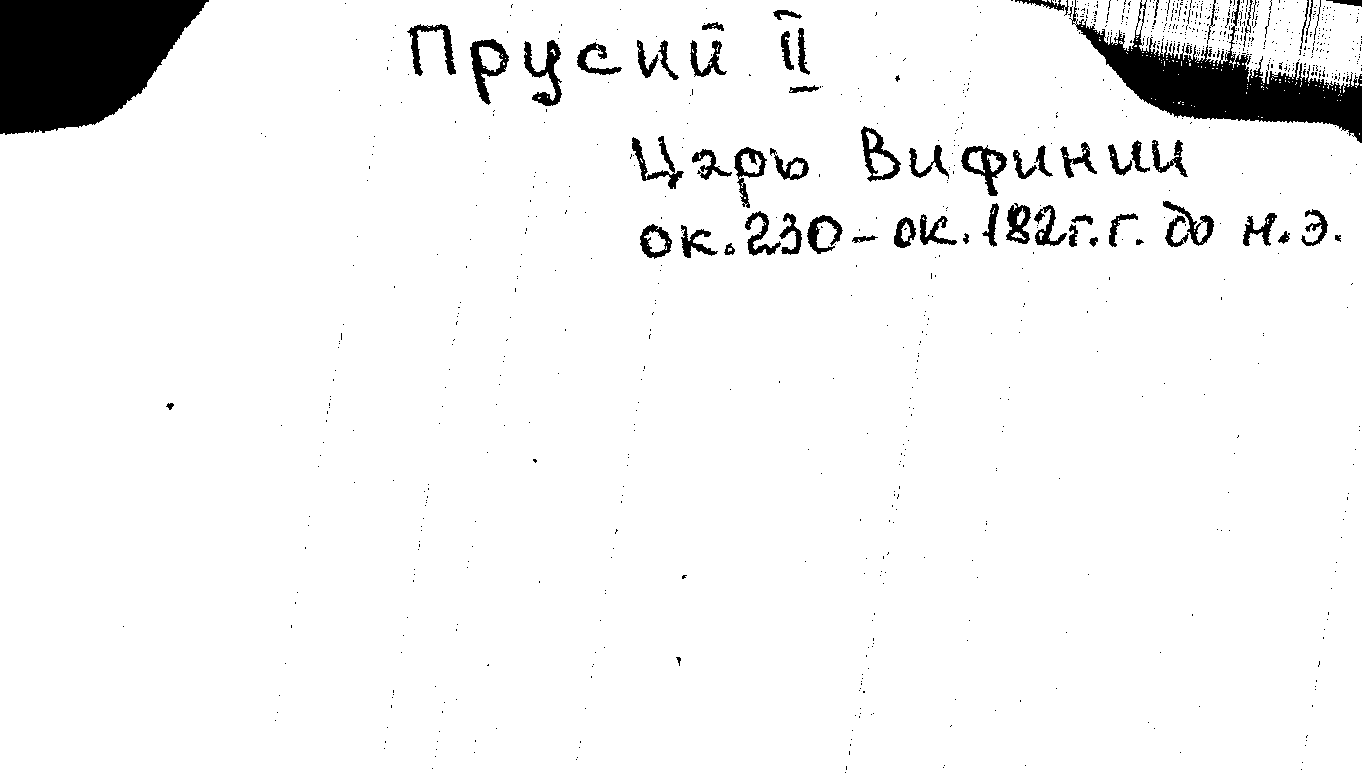 Прусий II
Царь Вифинии
ок. 230 – ок. 182 г.г. до н.э.